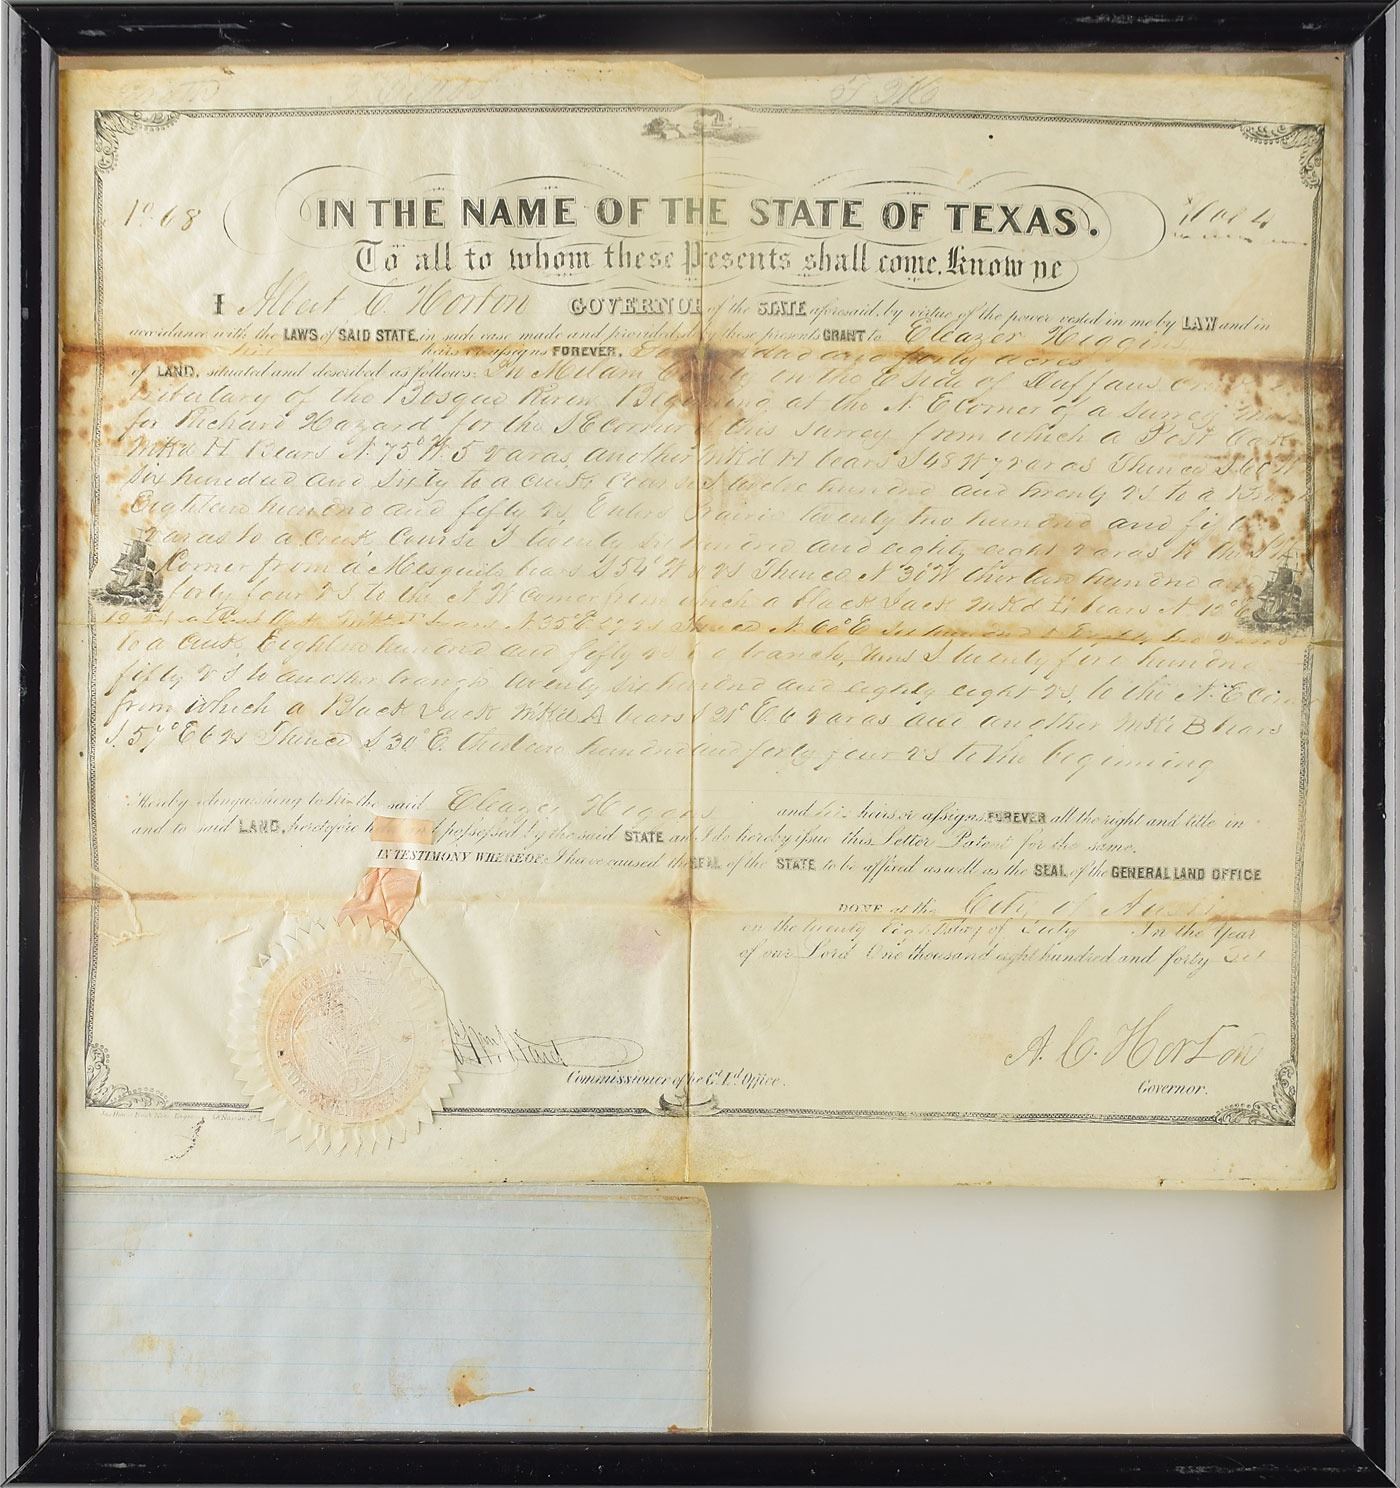 No. 68
Vol 4
IN THE NAME OF THE STATE OF TEXAS.
To all to whom these Presents shall come, Know ye
I Albert C. Horton GOVERNOR of the STATE aforesaid, by virtue of the power vested in me by LAW and in
accordance with the LAWS of SAID STATE, in such case made and provided, do by these presents GRANT to Eleazer Higgins
his heirs or assigns FOREVER, and forty acres
of LAND, situated and described as follows: In Milam County on the E side of Duffaus
tributary of the Bosque River Beginning at the N. E corner of a Survey made
for Richard Hazard for the S E corner of this survey from which a Post Oak
mkd H Bears N. 75° W. 5 varas another mkd H bears S 48 W 7 varas Thence S 60 W
six hundred and sixty to a creek course S twelve hundred and twenty vs to a Branch
Eighteen hundred and fifty vs Enters Prairie twenty two hundred and fifty
varas to a creek course S twenty six hundred and eighty eight varas to the S W
Corner from a Mesquite bears S 54° W vs Thence N 30 W thirteen hundred and
forty four vs to the N W corner from which a black Jack mkd bears N 12° E
a Post Oak mkd bears N 35° E vs Thence N 60° E six hundred & Eighty two varas
to a creek, Eighteen hundred and fifty vs to a branch, runs S twenty five hundred
fifty vs to another branch twenty six hundred and eighty eight vs, to the N. E Corner
from which a Black Jack mkd A bears S 21° E. 6 varas and another mkd B bears
S. 57° E 6 vs Thence S 30° E. thirteen hundred and forty four vs to the beginning
Hereby relinquishing to him the said Eleazer Higgins and his heirs or assigns, FOREVER all the right and title in
and to said LAND, heretofore held and possessed by the said STATE and I do hereby issue this Letter Patent for the same.
IN TESTIMONY WHEREOF: I have caused the SEAL of the STATE to be affixed as well as the SEAL of the GENERAL LAND OFFICE
DONE at the City of Austin
on the twenty Eighth day of July In the Year
of our Lord One thousand eight hundred and forty Six
Wm Ward
Commissioner of the Gl. Ld. Office.
A. C. Horton
Governor.